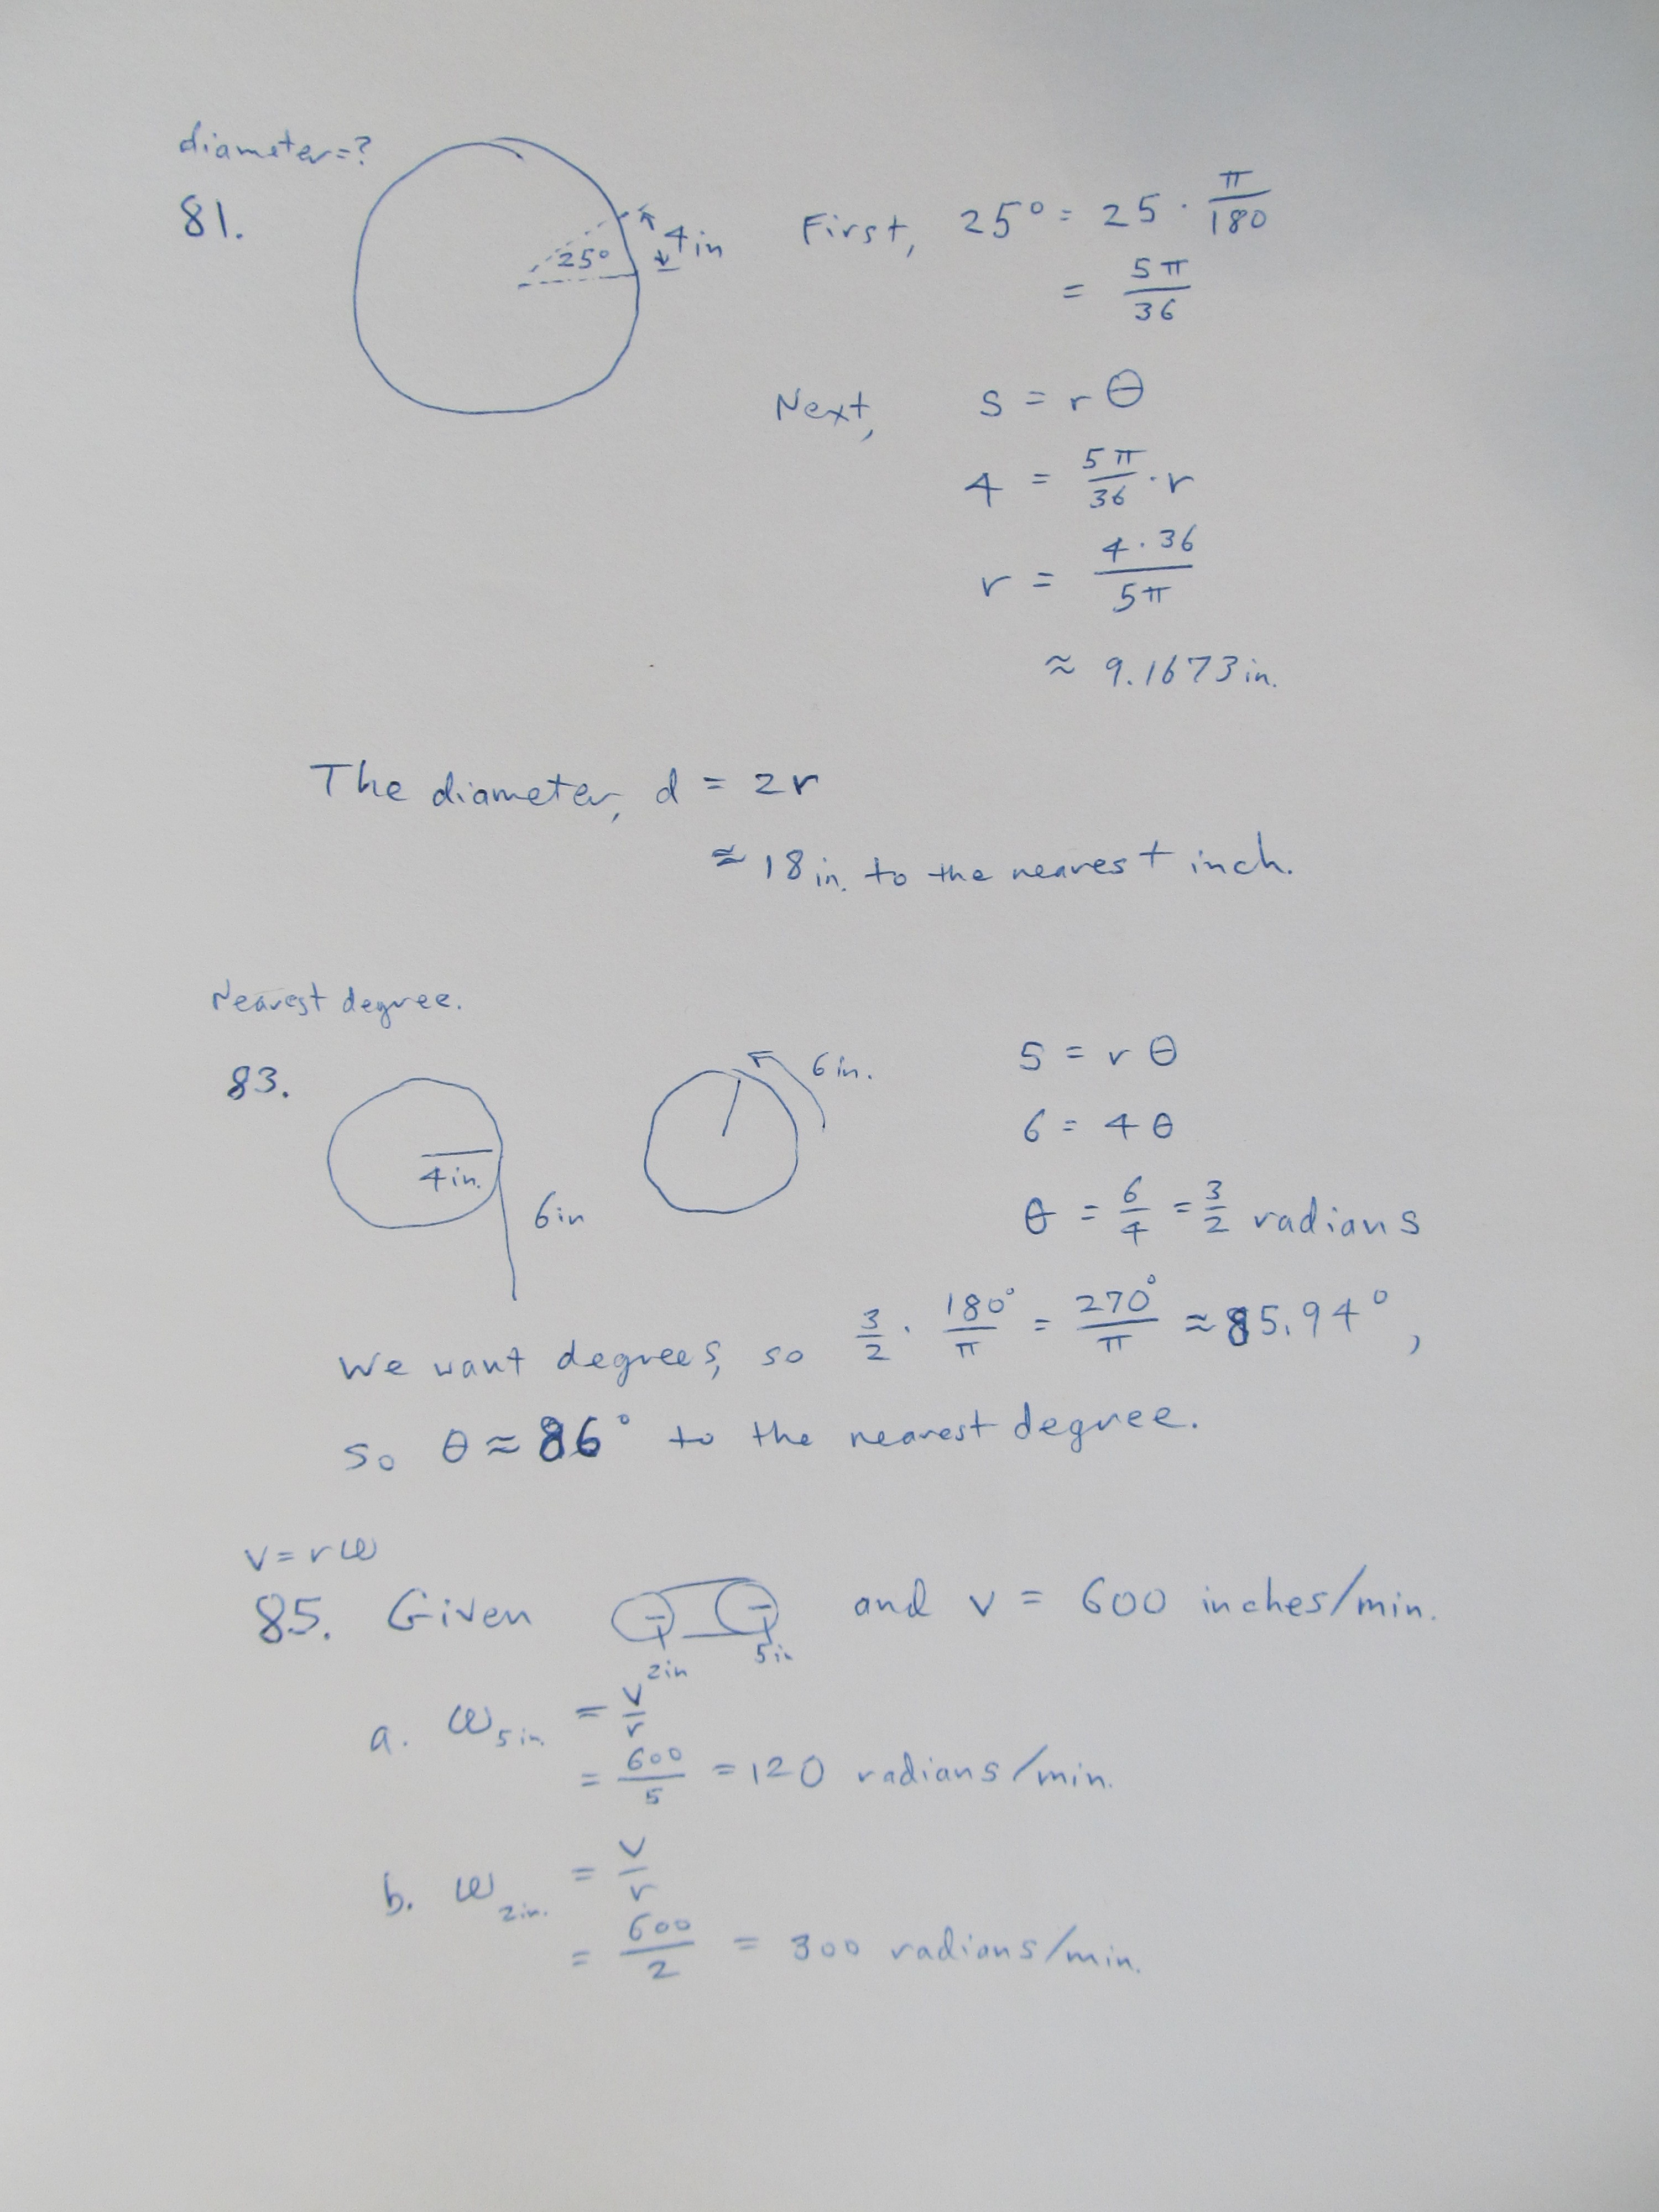 diameter=?
81.
25°
4in
First, 25° = 25 · π/180
= 5π/36
Next, s = rθ
4 = 5π/36 · r
r = 4·36/5π
≈ 9.1673in.
The diameter, d = 2r
≈ 18in. to the nearest inch.
Nearest degree.
83.
4in.
6in
6in.
S = rθ
6 = 4θ
θ = 6/4 = 3/2 radians
We want degrees, so 3/2 · 180°/π = 270°/π ≈ 85.94°,
so θ ≈ 86° to the nearest degree.
v = rω
85. Given 2in 5in and v = 600 inches/min.
a. ω5in. = v/r
= 600/5 = 120 radians/min.
b. ω2in. = v/r
= 600/2 = 300 radians/min.